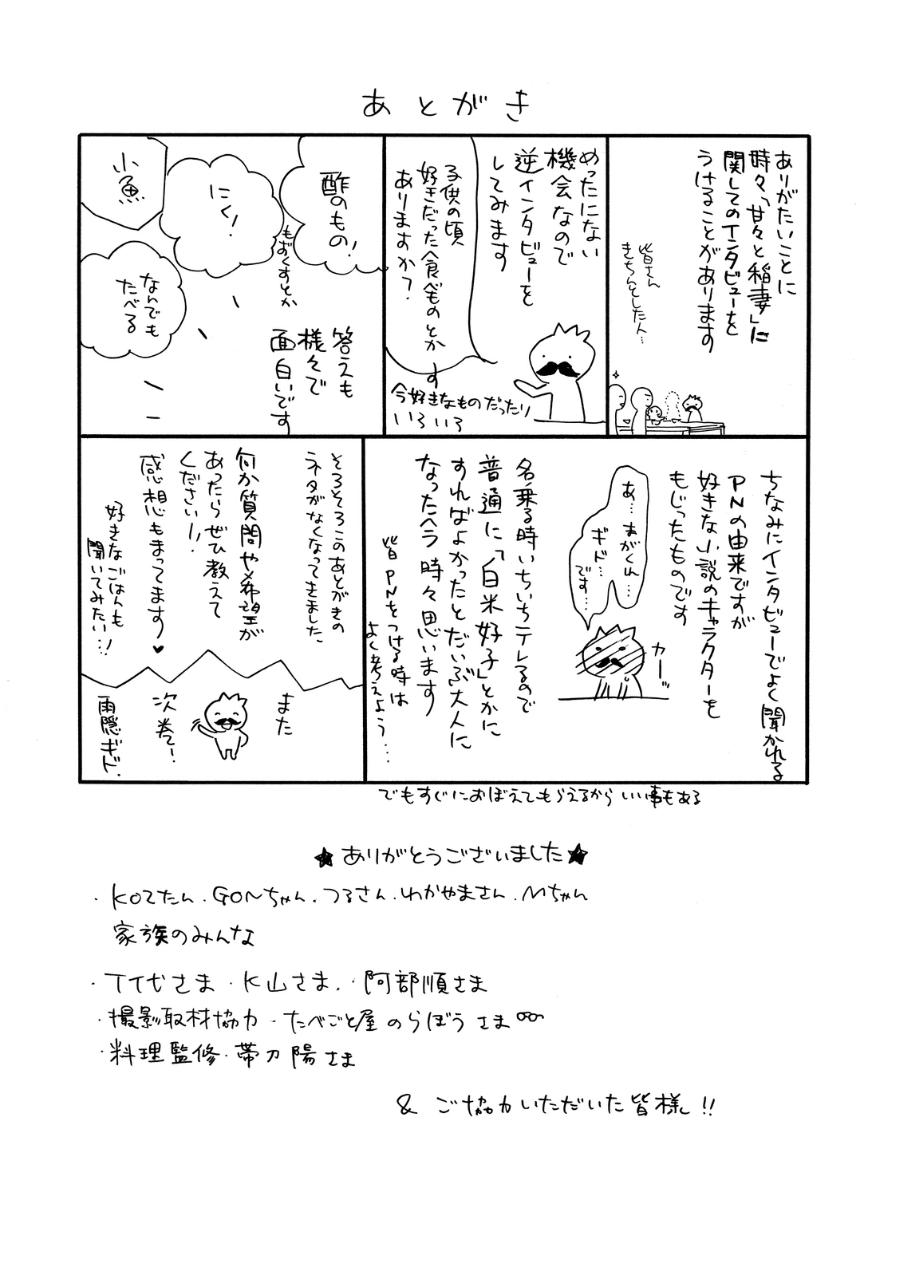 あとがき
ありがたいことに
時々「甘々と稲妻」に
関してのインタビューを
うけることがあります
皆さん
きちんとした人…
めったにない
機会なので
逆インタビューを
してみます
子供の頃
好きだった食べものとか
ありますか?
今好きなものだったり
いろいろ
酢のもの!
もずくすとか
にく!
小魚
なんでも
たべる
答えも
様々で
面白いです
ちなみにインタビューでよく聞かれる
PNの由来ですが
好きな小説のキャラクターを
もじったものです
あ…まがくれ…
ギド…
です…
カーッ
名乗る時いちいちテレるので
普通に「白米好子」とかに
すればよかったとだいぶ大人に
なったヘラ時々思います
皆PNをつける時は
よく考えよう…
でもすぐにおぼえてもらえるからいい事もある
そろそろこのあとがきの
ネタがなくなってきました
何か質問や希望が
あったらぜひ教えて
ください!!
感想もまってます♥
好きなごはんも
聞いてみたい…!
また
次巻で!
雨隠ギド.
★ありがとうございました★
・KOZたん.GONちゃん.つるさん.わかやまさん.Mちゃん
家族のみんな
・TY代さま・K山さま.・阿部順さま
・撮影取材協力・たべごと屋のらぼうさま
・料理監修・帯刀陽さま
& ご協力いただいた皆様!!